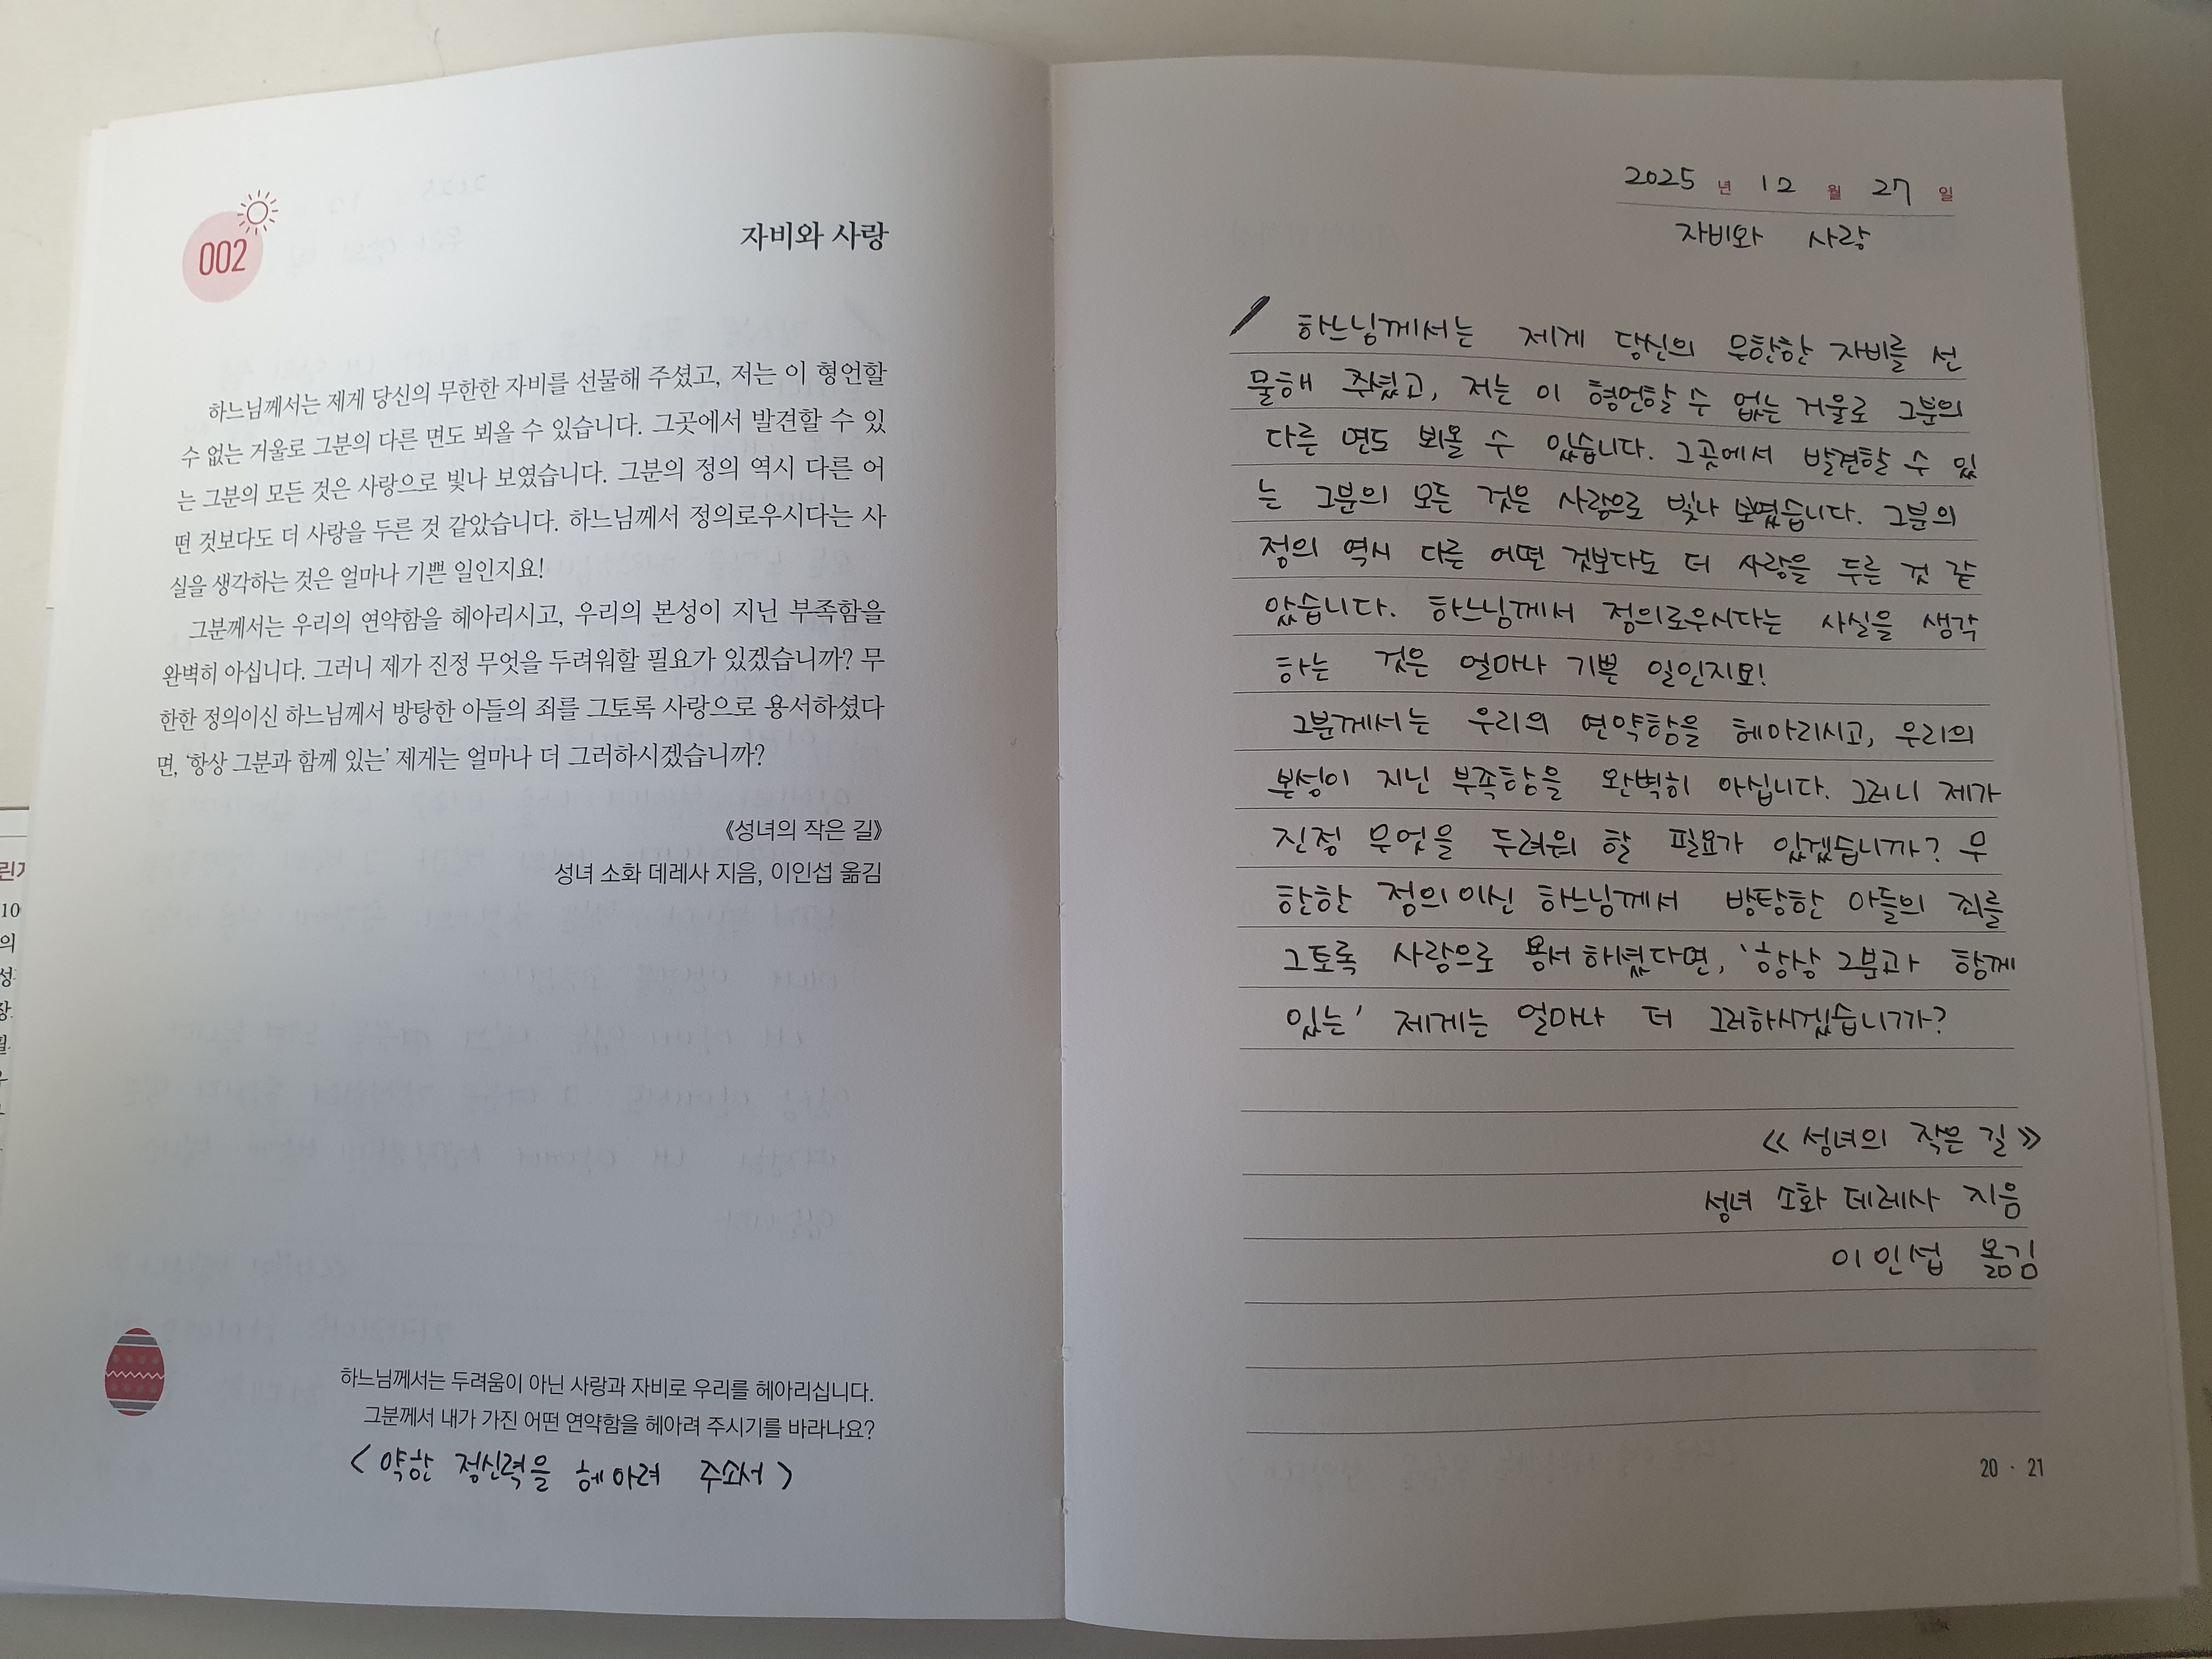 002
자비와 사랑
하느님께서는 제게 당신의 무한한 자비를 선물해 주셨고, 저는 이 형언할
수 없는 거울로 그분의 다른 면도 뵈올 수 있습니다. 그곳에서 발견할 수 있
는 그분의 모든 것은 사랑으로 빛나 보였습니다. 그분의 정의 역시 다른 어
떤 것보다도 더 사랑을 두른 것 같았습니다. 하느님께서 정의로우시다는 사
실을 생각하는 것은 얼마나 기쁜 일인지요!
그분께서는 우리의 연약함을 헤아리시고, 우리의 본성이 지닌 부족함을
완벽히 아십니다. 그러니 제가 진정 무엇을 두려워할 필요가 있겠습니까? 무
한한 정의이신 하느님께서 방탕한 아들의 죄를 그토록 사랑으로 용서하셨다
면, ‘항상 그분과 함께 있는’ 제게는 얼마나 더 그러하시겠습니까?
《성녀의 작은 길》
성녀 소화 데레사 지음, 이인섭 옮김
하느님께서는 두려움이 아닌 사랑과 자비로 우리를 헤아리십니다.
그분께서 내가 가진 어떤 연약함을 헤아려 주시기를 바라나요?
< 약한 정신력을 헤아려 주소서 >
2025 년 12 월 27 일
자비와 사랑
하느님께서는 제게 당신의 무한한 자비를 선
물해 주셨고, 저는 이 형언할 수 없는 거울로 그분의
다른 면도 뵈올 수 있습니다. 그곳에서 발견할 수 있
는 그분의 모든 것은 사랑으로 빛나 보였습니다. 그분의
정의 역시 다른 어떤 것보다도 더 사랑을 두른 것 같
았습니다. 하느님께서 정의로우시다는 사실을 생각
하는 것은 얼마나 기쁜 일인지요!
그분께서는 우리의 연약함을 헤아리시고, 우리의
본성이 지닌 부족함을 완벽히 아십니다. 그러니 제가
진정 무엇을 두려워 할 필요가 있겠습니까? 무
한한 정의이신 하느님께서 방탕한 아들의 죄를
그토록 사랑으로 용서하셨다면, ‘항상 그분과 함께
있는’ 제게는 얼마나 더 그러하시겠습니까?
《 성녀의 작은 길 》
성녀 소화 데레사 지음
이인섭 옮김
20 · 21